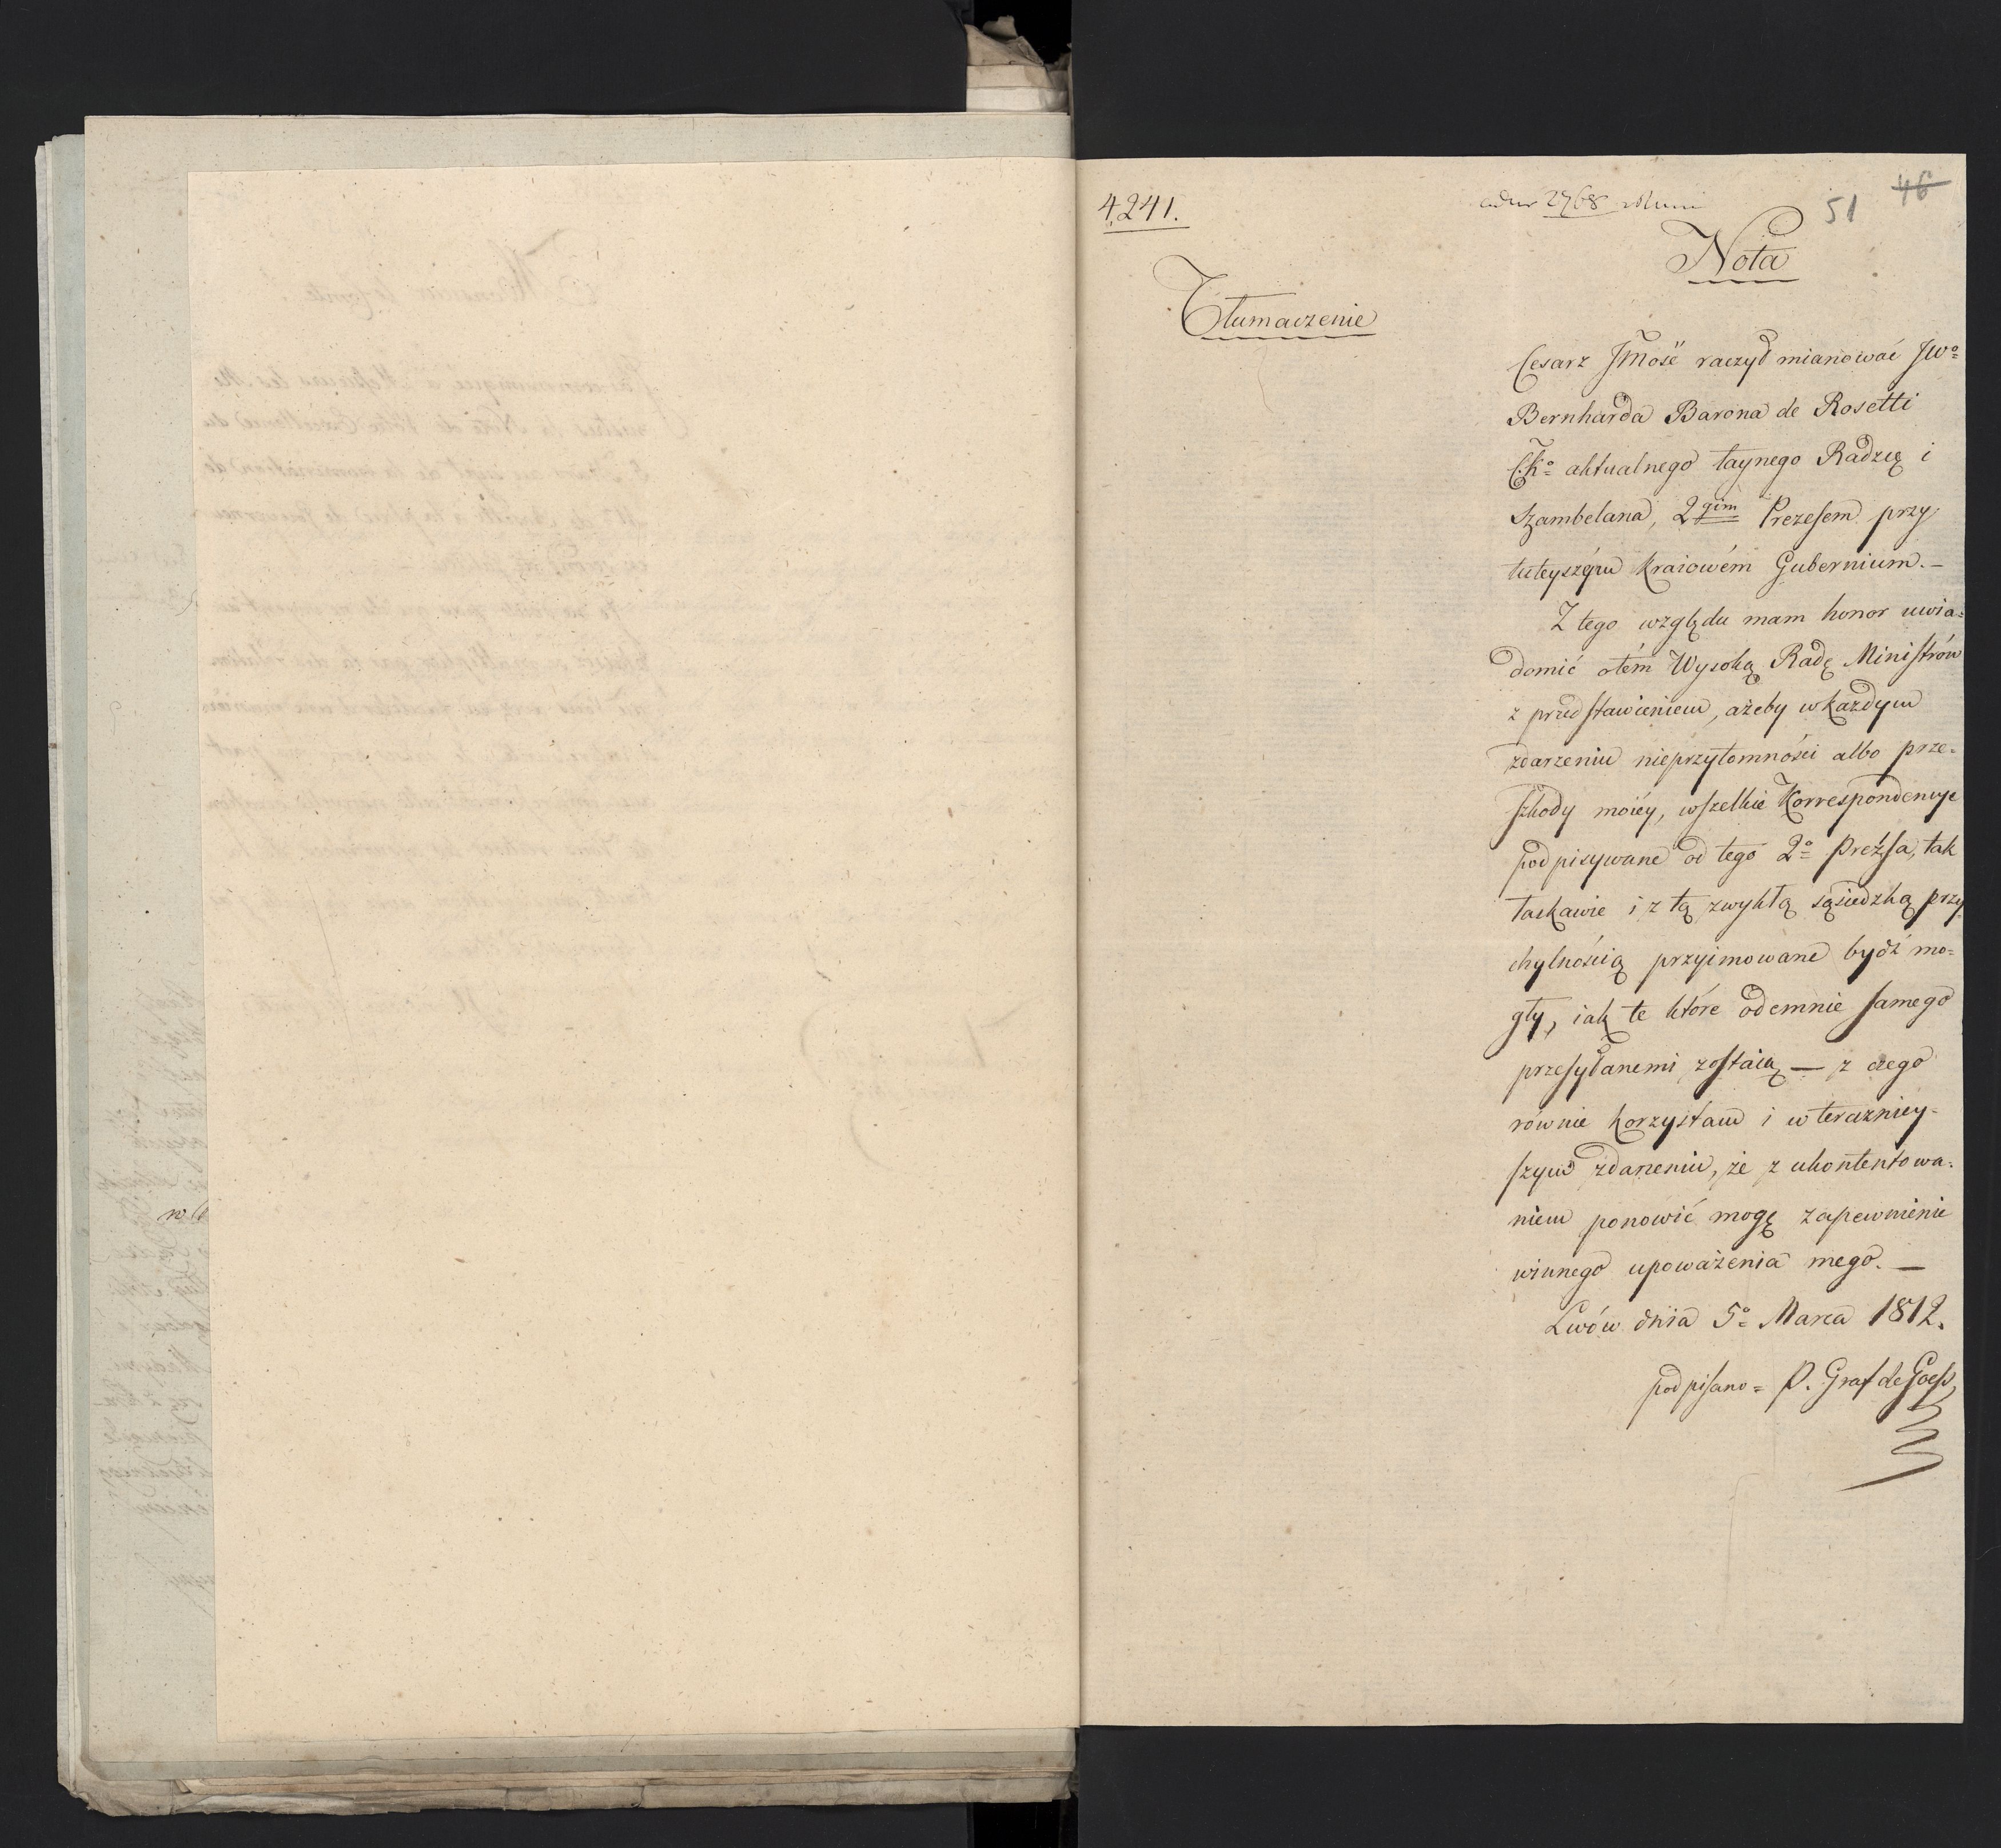 4241.
ad nr 2768
51
46
Nota
Tłumaczenie
Cesarz JMość raczył mianować JWo
Bernharda Barona de Rosetti
C.Ko aktualnego taynego Radzcę i
Szambelana, 2gim Prezesem przy
tuteyszém kraiowém Gubernium. —
Z tego względu mam honor uwia=
domić otém Wysoką Radę Ministrów
z przedstawieniem, ażeby w każdym
zdarzeniu nieprzytomności albo prze=
szkody moiéy, wszelkie Korrespondencye
podpisywane od tego 2o Prezsa, tak
łaskawie i z tą zwykłą sąsiedzką przy
chylnością przyimowane bydź mo=
gły, iak te które odemnie samego
przesyłanemi zostaią — z czego
równie korzystam i w teraźniey=
szym zdarzeniu, że z ukontentowa=
niem ponowić mogę zapewnienie
winnego upoważenia mego. —
Lwów dnia 5o Marca 1812.
podpisano = P. Graf de Goess